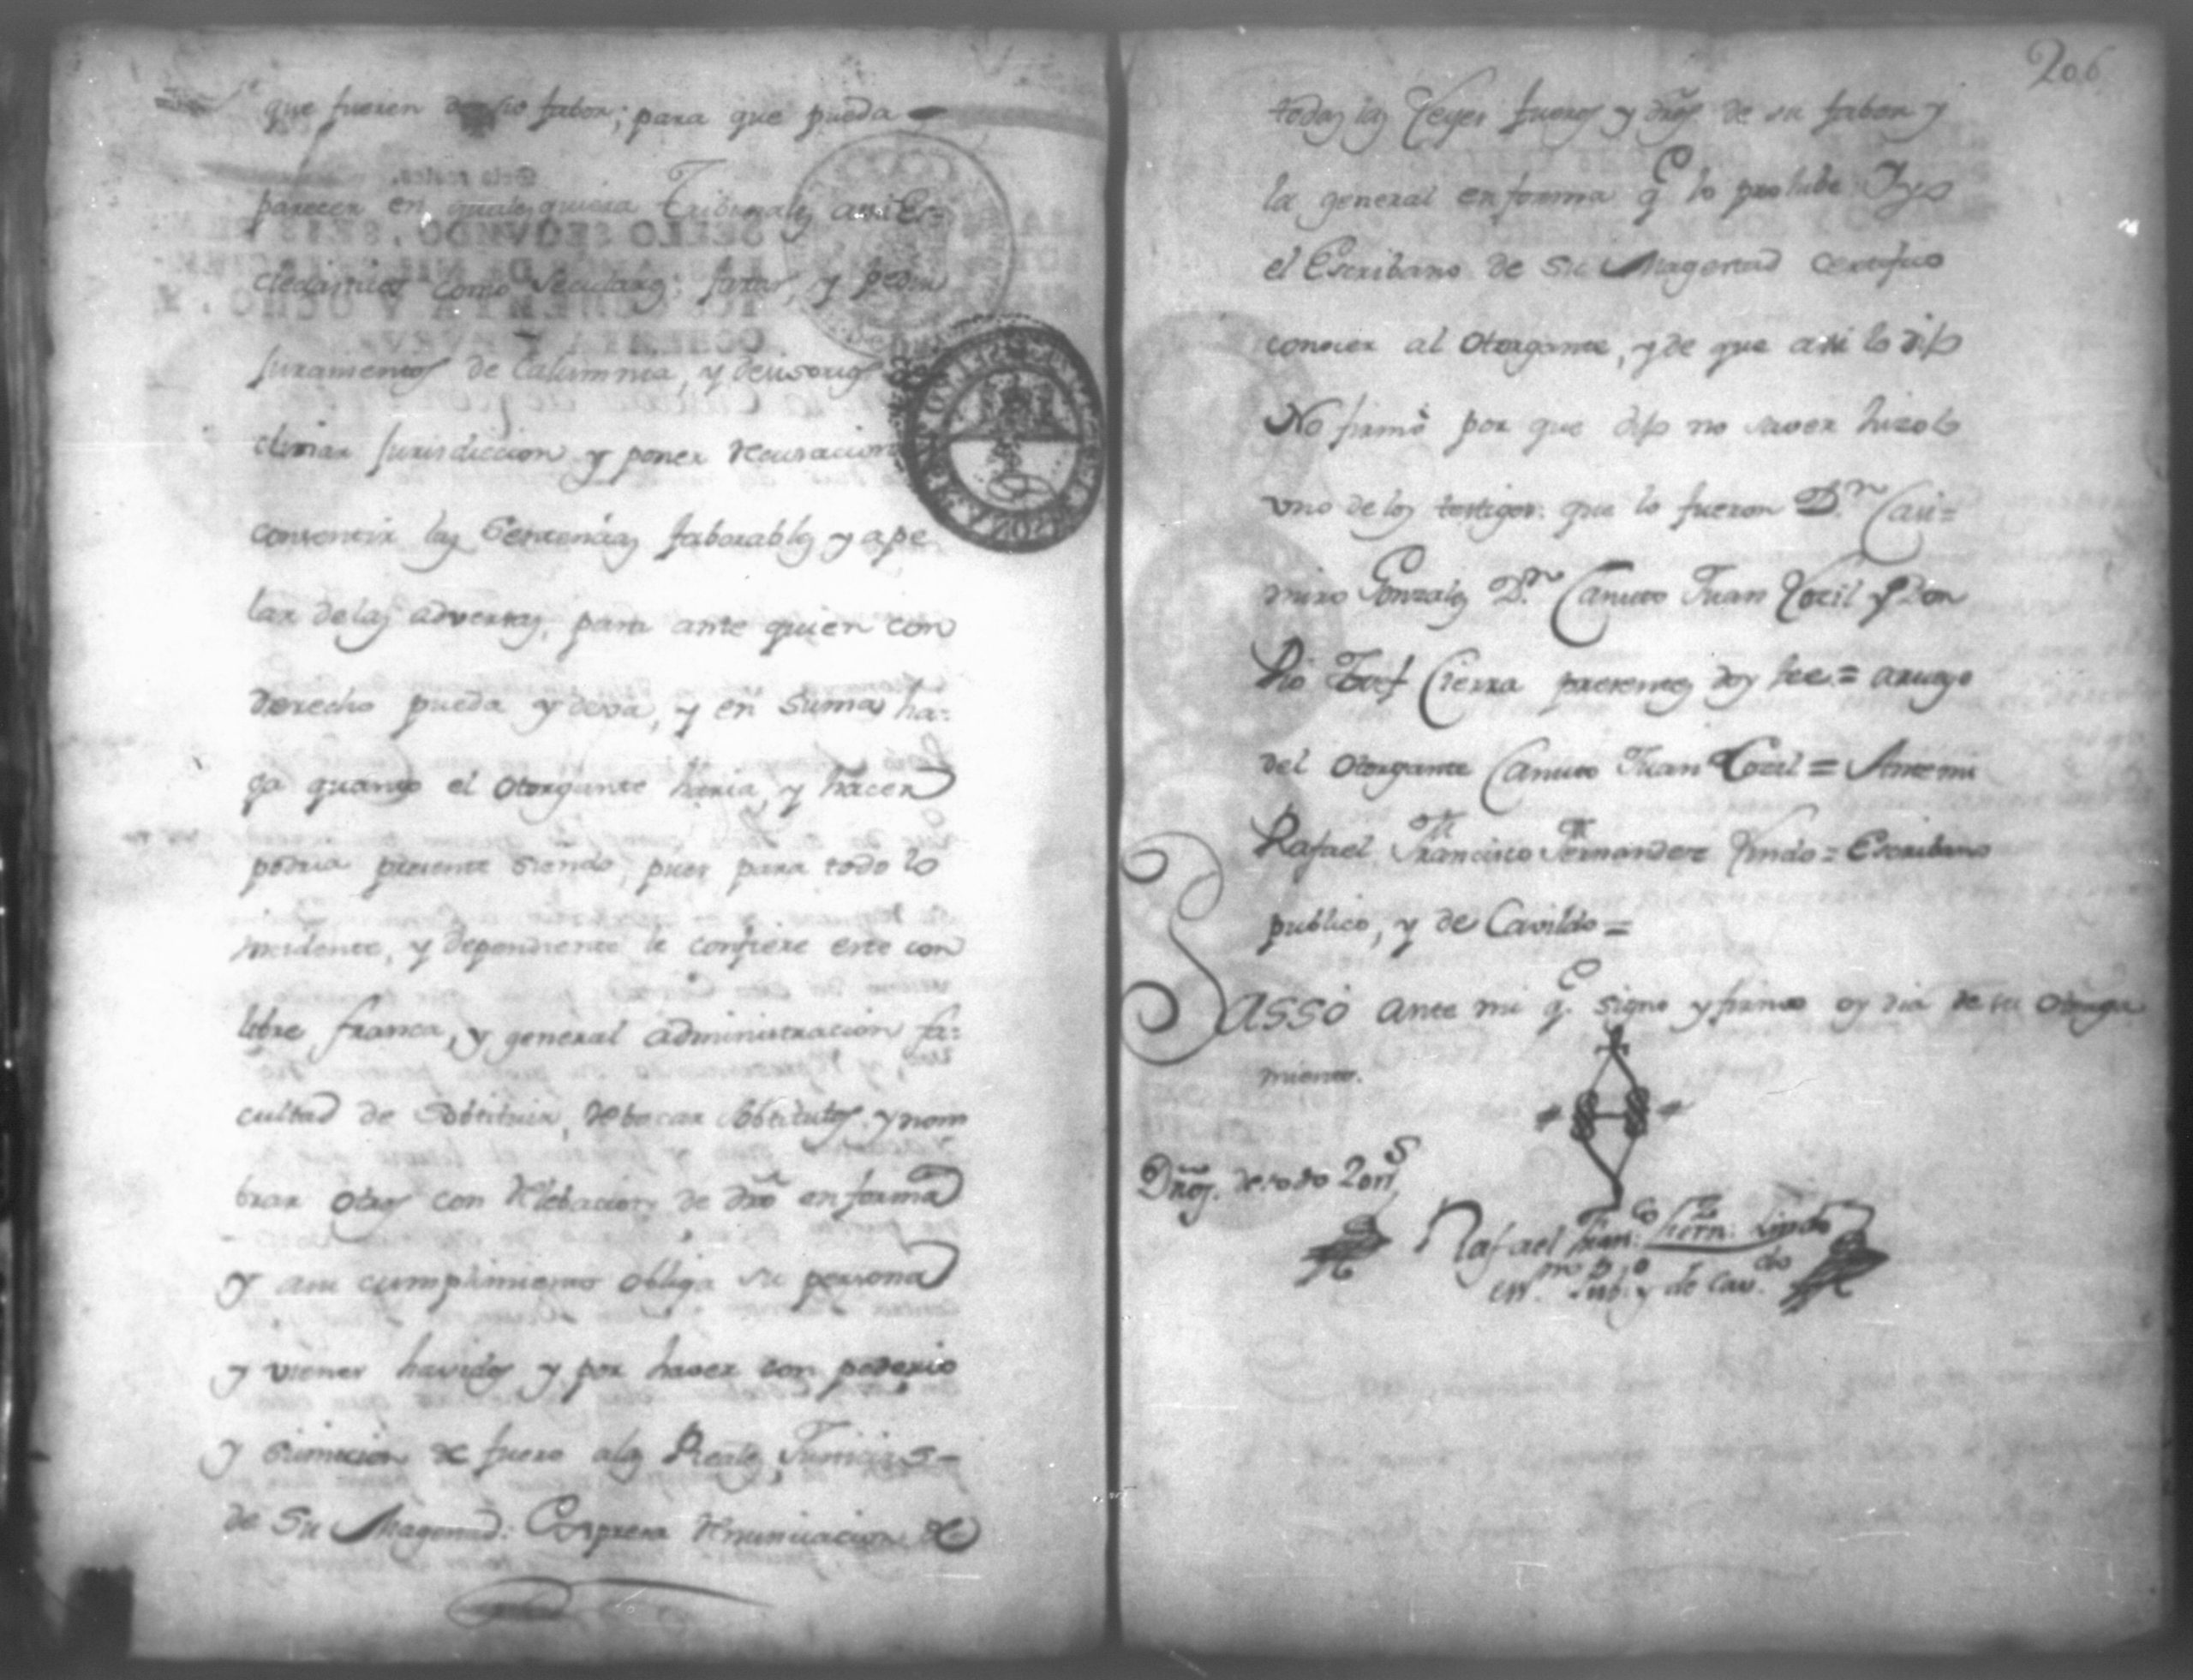 que fueren de sio fabor; para que pueda
parecer en qualesquiera Tribunales asi Ec=
clesiasticos como seculares; jurar, y pedir
juramentos de Calumnia, y decisorios de
clinar Jurisdiccion y poner recusacion
consentir las Sentencias faborables y ape
lar de las adversas, para ante quien con
derecho pueda y deva, y en suma ha=
ga quanto el otorgante haria, y hacer
podria presente siendo, pues para todo lo
incidente, y dependiente le confiere este con
libre franca, y general administracion fa=
cultad de Sobstituir, rebocar sobstitutos y nom
brar otros con relebacion de dro en forma
y asu cumplimiento obliga su persona
y vienes havidos y por haver con poderio
y sumicion de fuero alas Reales Justicias
de Su Magestad: Expresa renunciacion de
206
todas las Leyes fueros y dros de su fabor y
la general en forma q.e lo prohibe Y yo
el Escribano de Su Magestad certifico
conocer al otorgante, y de que asi lo dijo
No firmò por que dijo no saver hizolo
uno de los testigos que lo fueron D.n Casi=
miro Gonzales D.n Canuto Juan Toril y Don
Pio Josef Cierra presentes doy fee = aruego
del otorgante Canuto Juan Toril = Antemi
Rafael Francisco Fernandez Lindo = Escribano
publico, y de Cavildo =
Passó ante mi q.e signo y firmo oy dia de su otorga
miento.
Dros. de todo
Rafael Fran.co Fern.z Lindo
ess.no Pub.o y de Cav.do